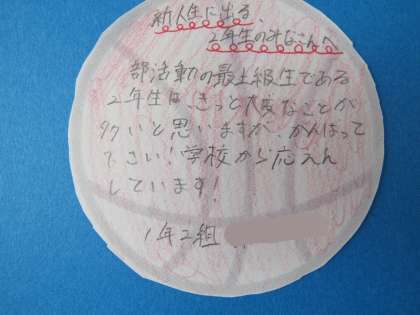 新人生に出る、
2年生のみなさんへ
部活動の最上級生である
2年生は、きっと大変なことが
多いと思いますが、がんばって
下さい！学校から応えん
しています！
1年2組